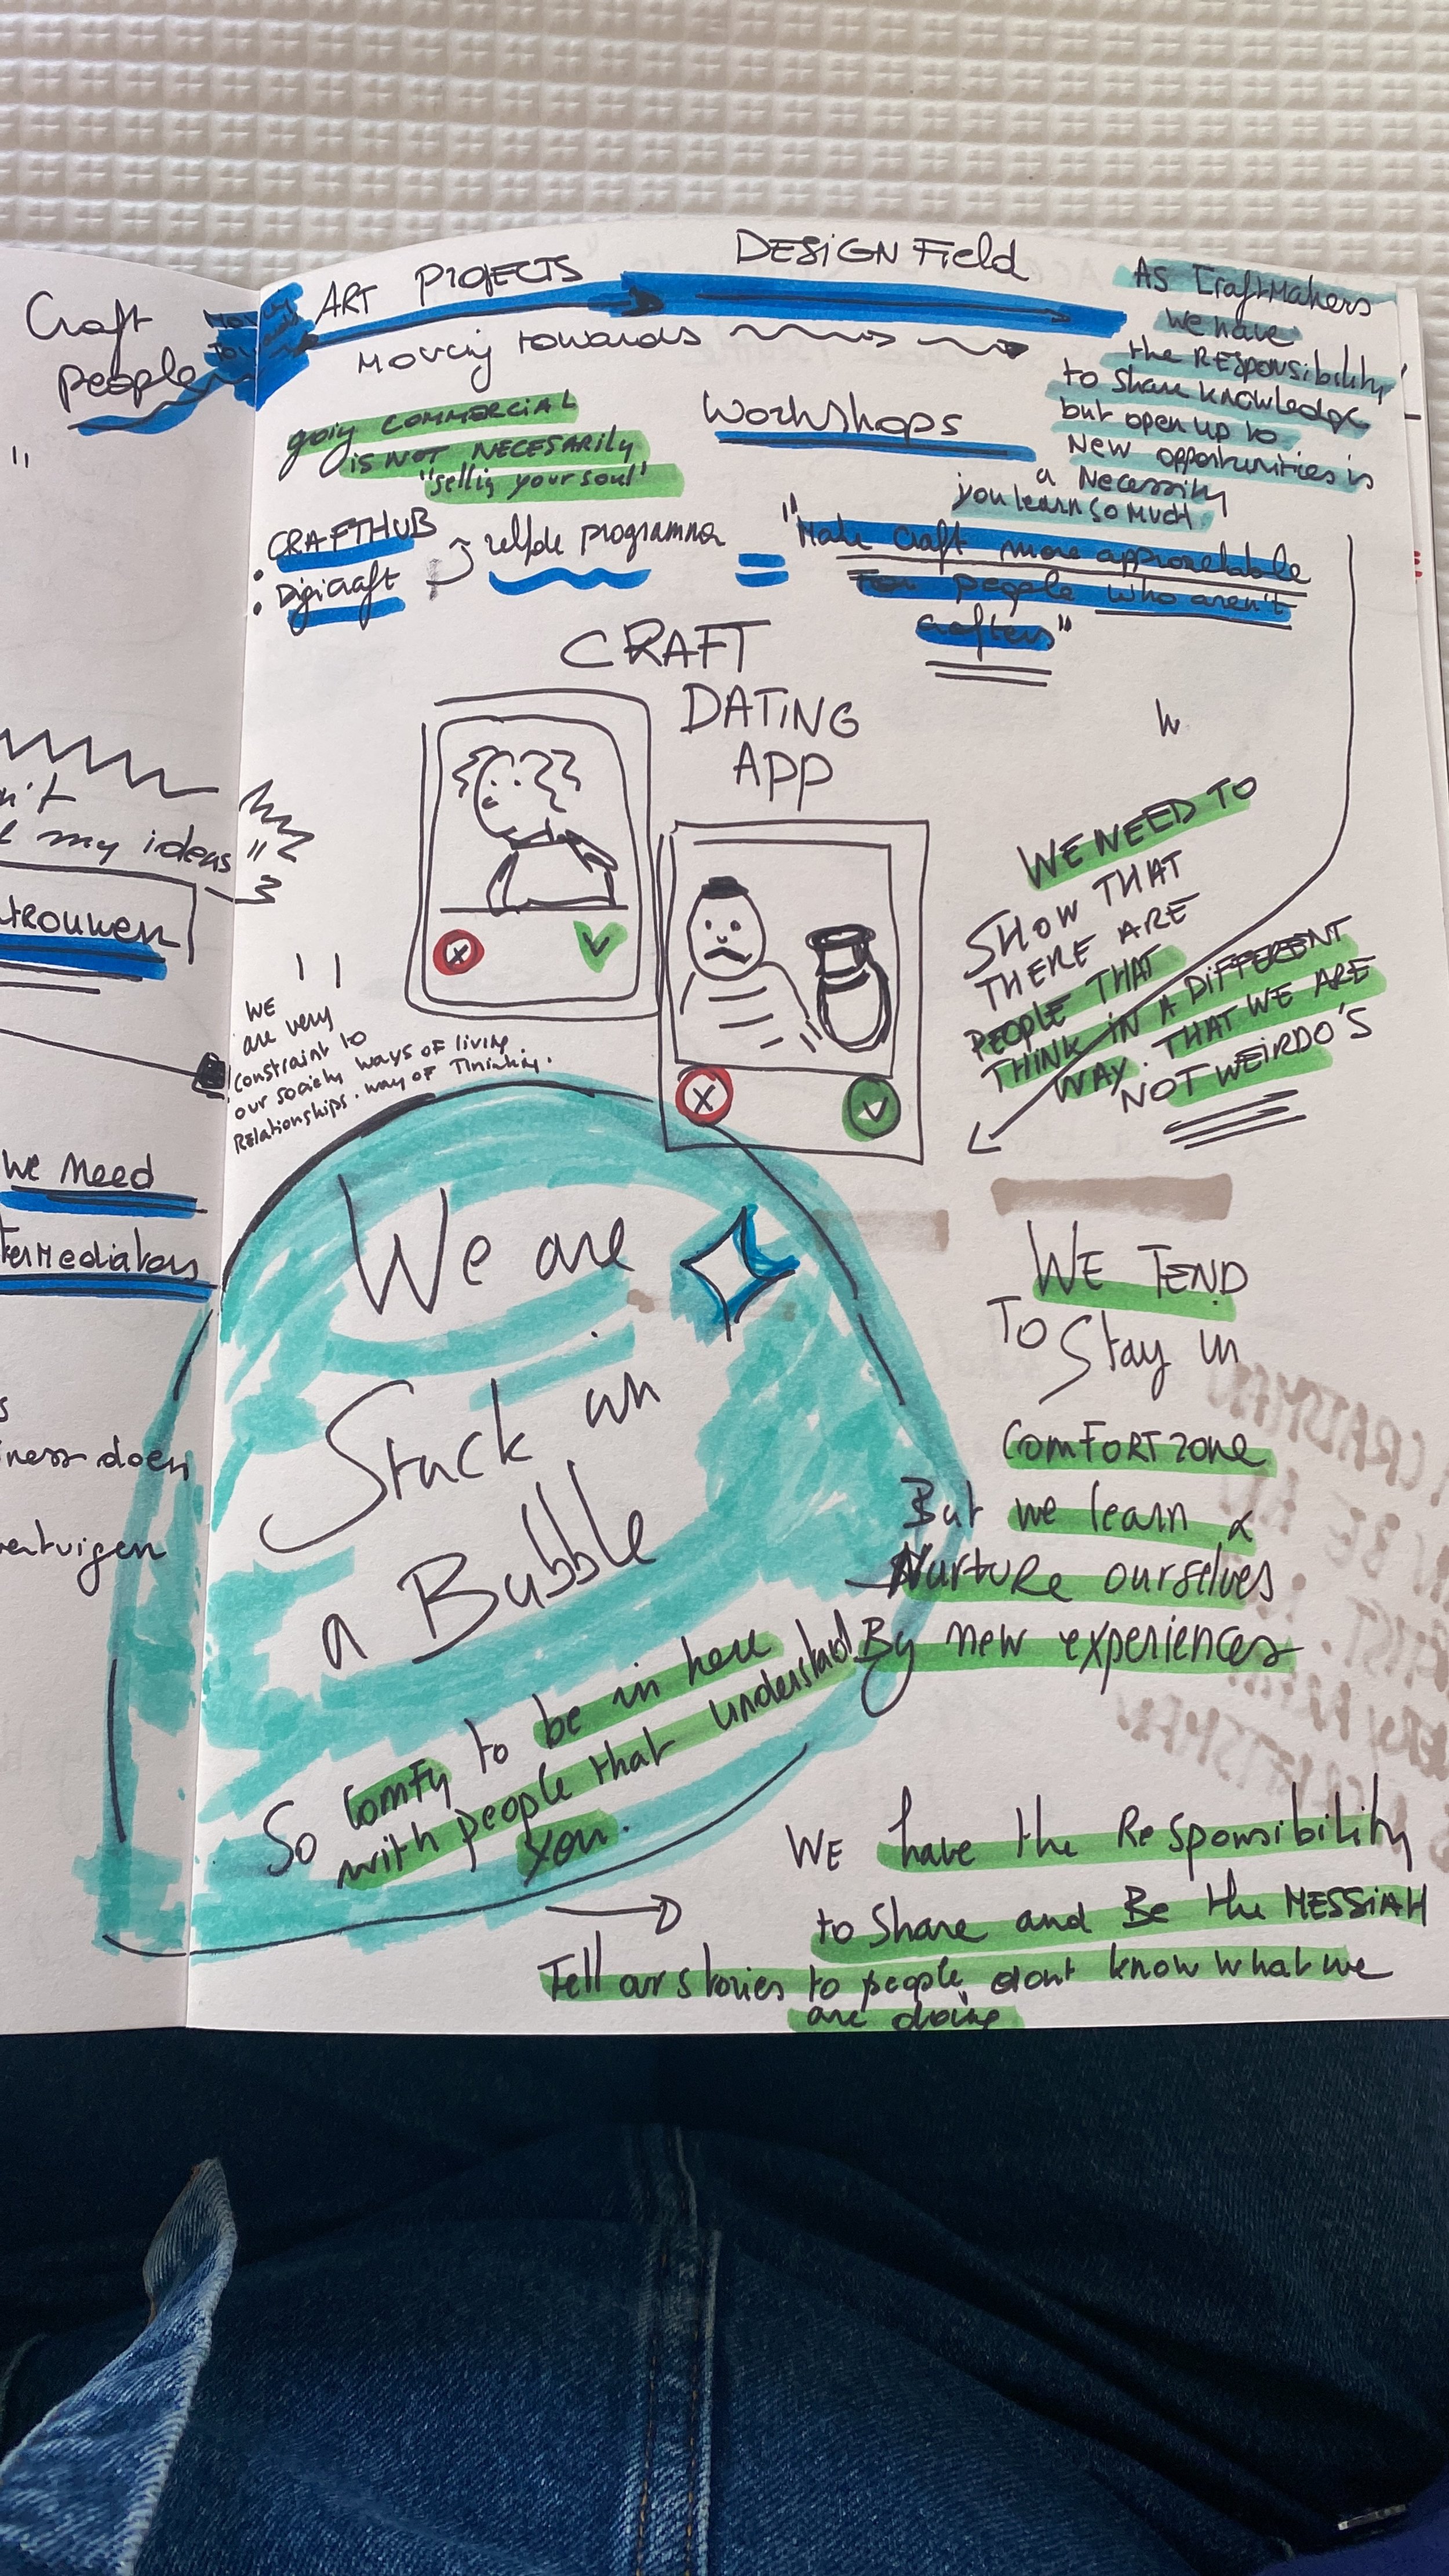 Craft
people
ART PROJECTS
DESIGN Field
Moving towards
going COMMERCIAL
is NOT NECESARILY
"selling your soul"
Workshops
AS CraftMakers
We have
the RESPONSibility
to share knowledge
but open up to
New opportunities is
a Necessity
you learn so much
• CRAFTHUB
• Digicraft
zelfde programma
=
"Make craft more approetable
For people who aren't
crafters"
CRAFT
DATING
APP
my ideas"
trouwen
WE
are very
constraint to
our society ways of living.
Relationships. way of Thinking.
WE NEED TO
SHOW THAT
THERE ARE
PEOPLE THAT
THINK IN A DIFFERENT
WAY. THAT WE ARE
NOT WEIRDO'S
We Need
termediators
doen
We are
Stuck in
a Bubble
So Comfy to be in here
with people that understand
you.
WE TEND
To Stay in
COMFORT zone
But we learn &
Nurture ourselves
By new experiences
WE have the Responsibility
to Share and Be the MESSiAH
Tell our stories to people dont know what we
are doing